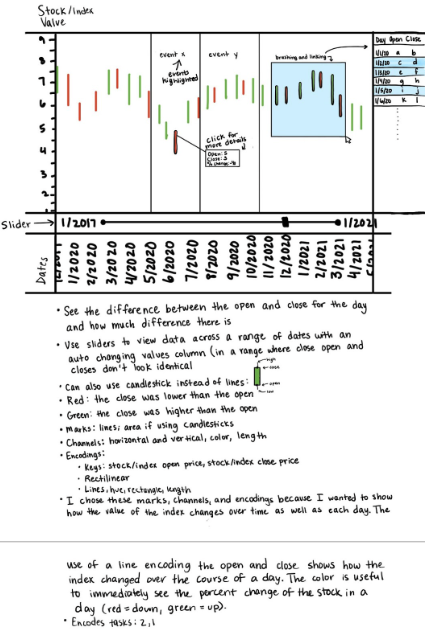 Stock/index
Value
9
8
7
6
5
4
3
2
event x
events
highlighted
event y
brushing and linking
click for
more details
Open: 5
Close: 3
Day Open Close
1/1/20 a b
1/2/20 c d
1/3/20 e f
1/4/20 g h
1/5/20 i j
1/6/20 k l
Slider → 1/2017 1/2021
Dates
1/2020
2/2020
3/2020
4/2020
5/2020
6/2020
7/2020
8/2020
9/2020
10/2020
11/2020
12/2020
1/2021
2/2021
3/2021
4/2021
• See the difference between the open and close for the day
and how much difference there is
• Use sliders to view data across a range of dates with an
auto changing values column (in a range where close open and
closes don't look identical
• Can also use candlestick instead of lines:
high
close
open
low
• Red: the close was lower than the open
• Green: the close was higher than the open
• Marks: lines; area if using candlesticks
• Channels: horizontal and vertical, color, length
• Encodings:
• Keys: stock/index open price, stock/index close price
• Rectilinear
• Lines, hue, rectangle, length
• I chose these marks, channels, and encodings because I wanted to show
how the value of the index changes over time as well as each day. The
use of a line encoding the open and close shows how the
index changed over the course of a day. The color is useful
to immediately see the percent change of the stock in a
day (red = down, green = up).
• Encodes tasks: 2, 1